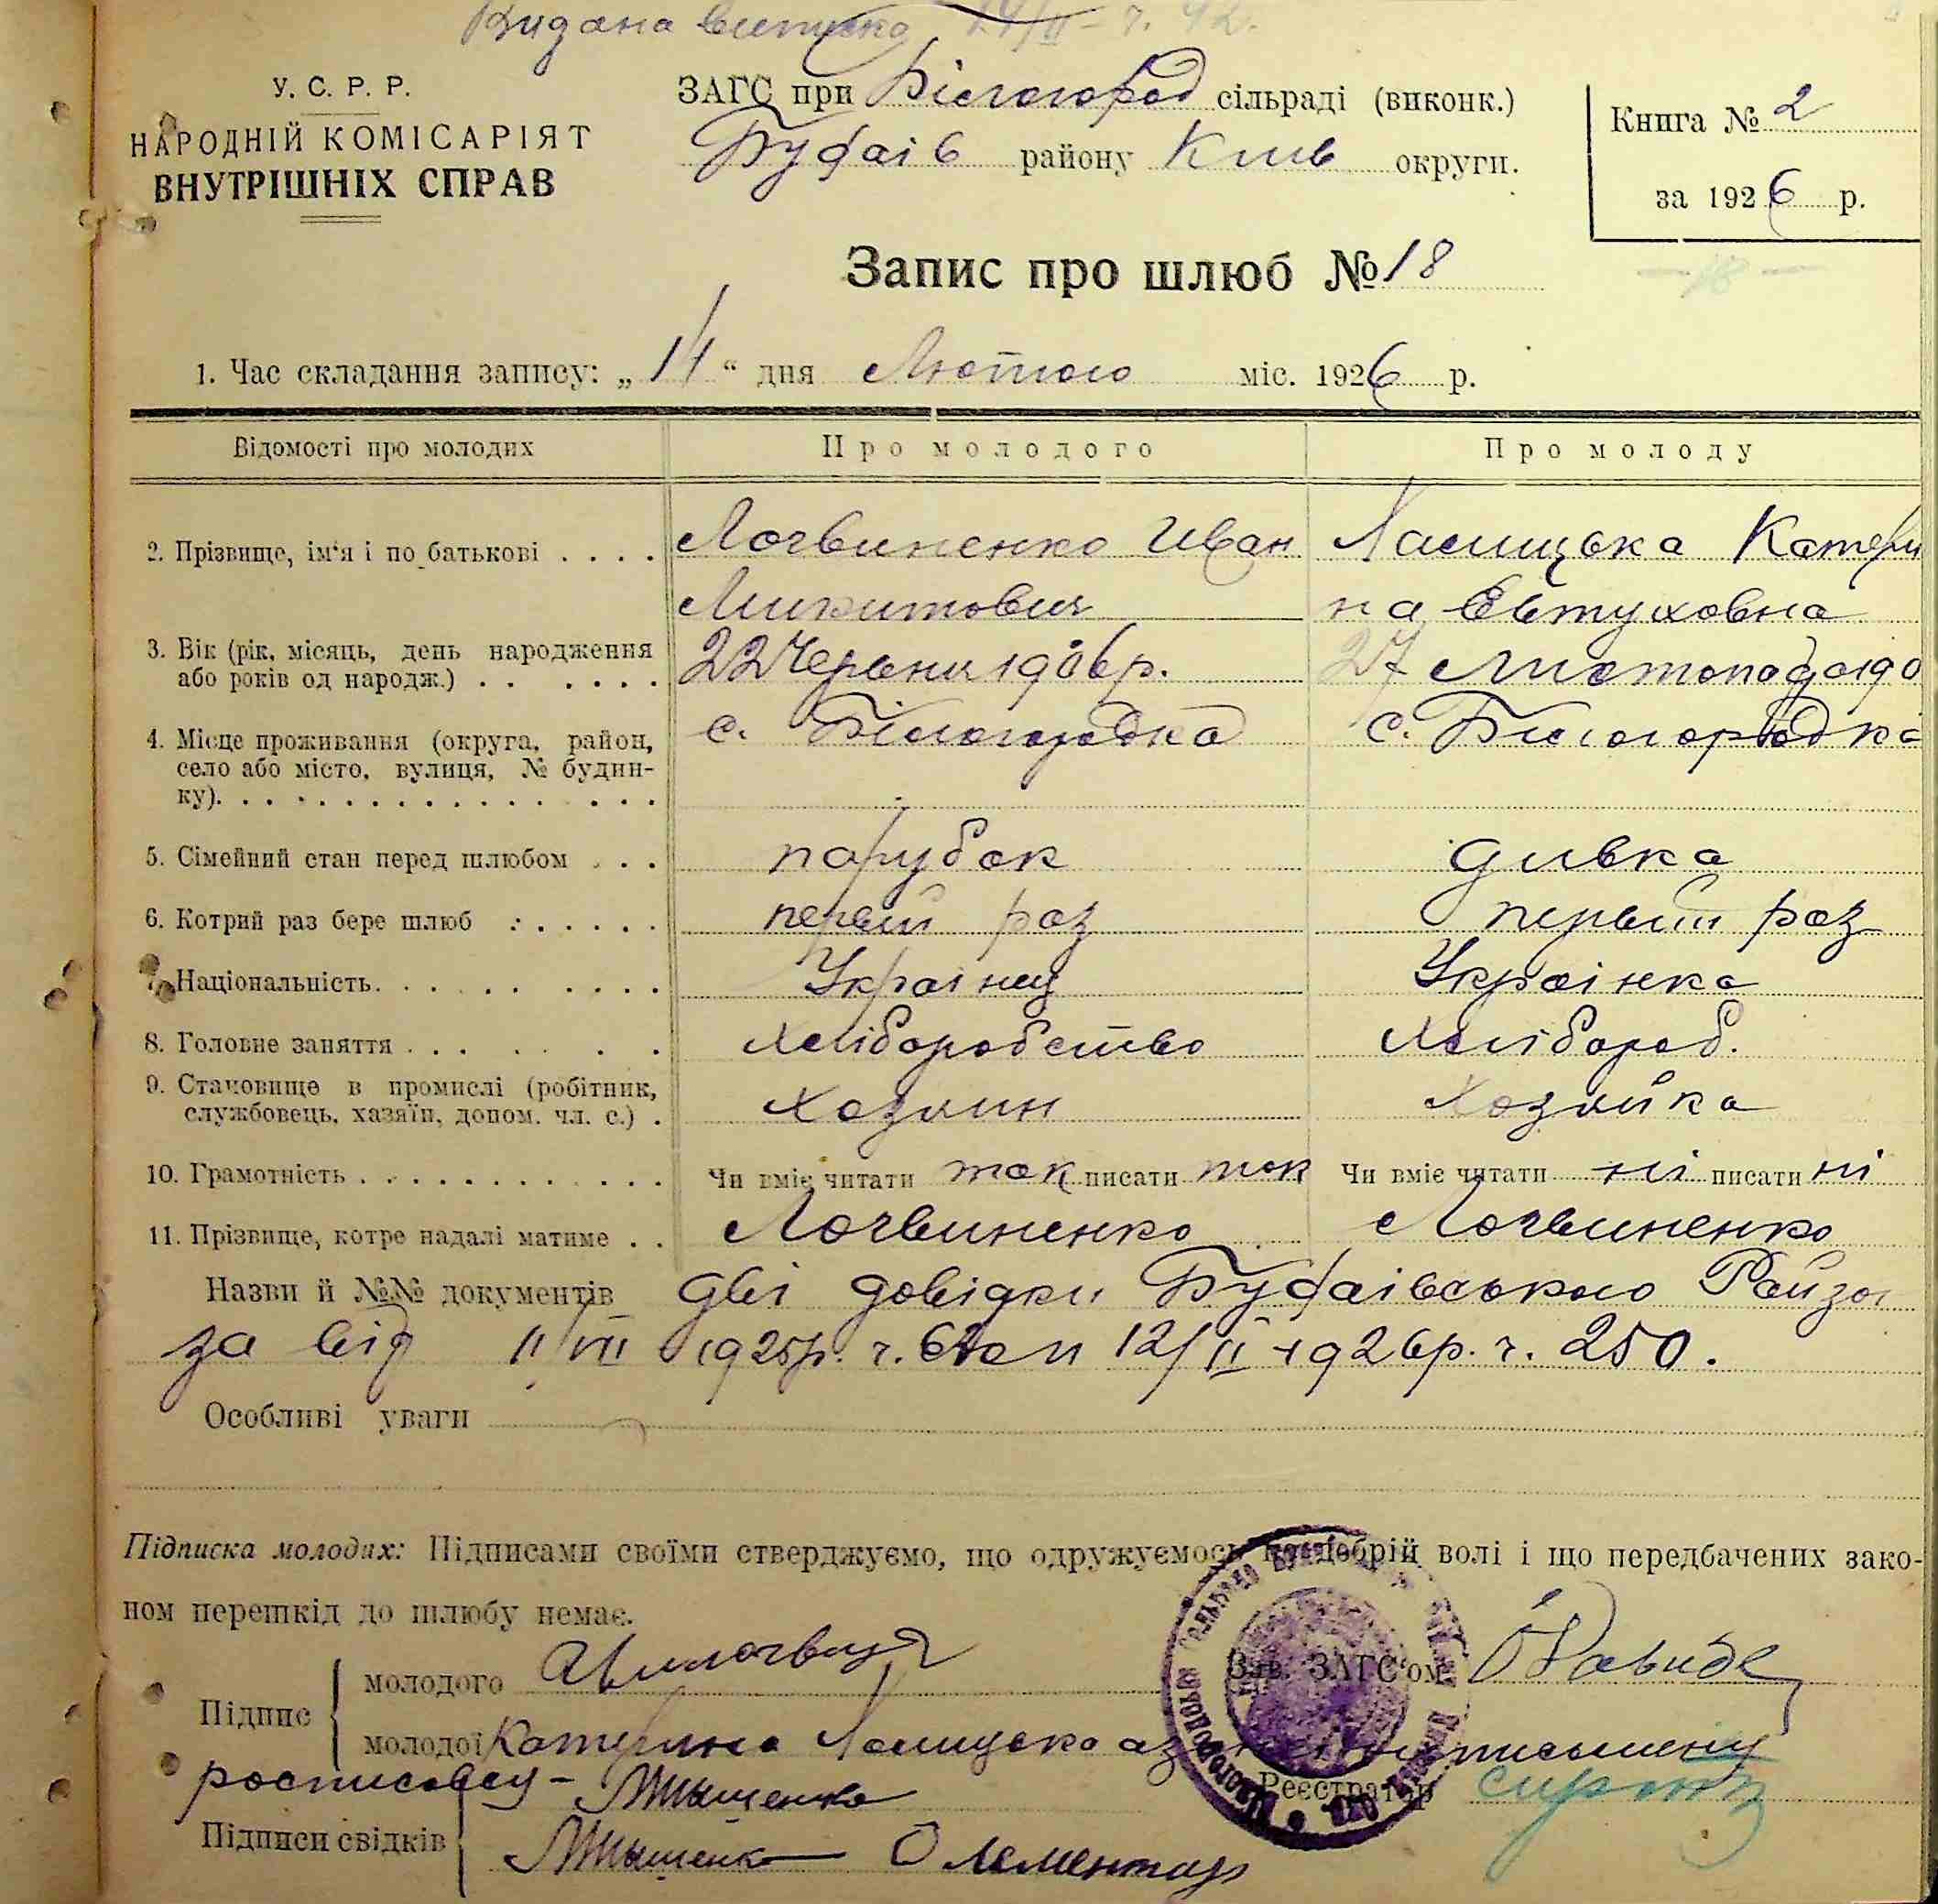 Видана виписка 14/II - ч. 92.
У. С. Р. Р.
НАРОДНІЙ КОМІСАРІЯТ
ВНУТРІШНІХ СПРАВ
ЗАГС при Білогород сільраді (виконк.)
Будаів району Київ округи.
Книга № 2
за 1926 р.
Запис про шлюб № 18
18
1. Час складання запису: „14“ дня Лютого міс. 1926 р.
Відомості про молодих Про молодого Про молоду
2. Прізвище, ім‘я і по батькові . . . . Логвиненко Иван Ласицька Катери
Микитович на Євтуховна
3. Вік (рік, місяць, день народження 22 Червня 1906 р. 27 Листопада 190
або років од народж.) . . . . . .
4. Місце проживання (округа, район, с. Білогородка с. Білогородка
село або місто, вулиця, № будин-
ку). . . . . . . . . . . . . . . .
5. Сімейний стан перед шлюбом . . . парубок дивка
6. Котрий раз бере шлюб . . . . . . первий раз первий раз
7. Національність. . . . . . . . . . Украінец Украінка
8. Головне заняття . . . . . . . Хліборобство Хлібороб.
9. Становище в промислі (робітник, Хозяин Хозяйка
службовець, хазяїн, допом. чл. с.) .
10. Грамотність . . . . . . . . . . . . Чи вміє читати так писати так Чи вміє читати ні писати ні
11. Прізвище, котре надалі матиме . . Логвиненко Логвиненко
Назви й №№ документів дві довідки Будаівського Райза
за від 11/VII 1925р. ч. 12/II 1926р. ч. 250.
Особливі уваги
Підписка молодих: Підписами своїми стверджуємо, що одружуємось по добрій волі і що передбачених зако-
ном перешкід до шлюбу немає.
Підпис
молодого
Зав. ЗАГС‘ом
молодої Катерина Ласицька а
росписавсу -
Реєстратор
Підписи свідків